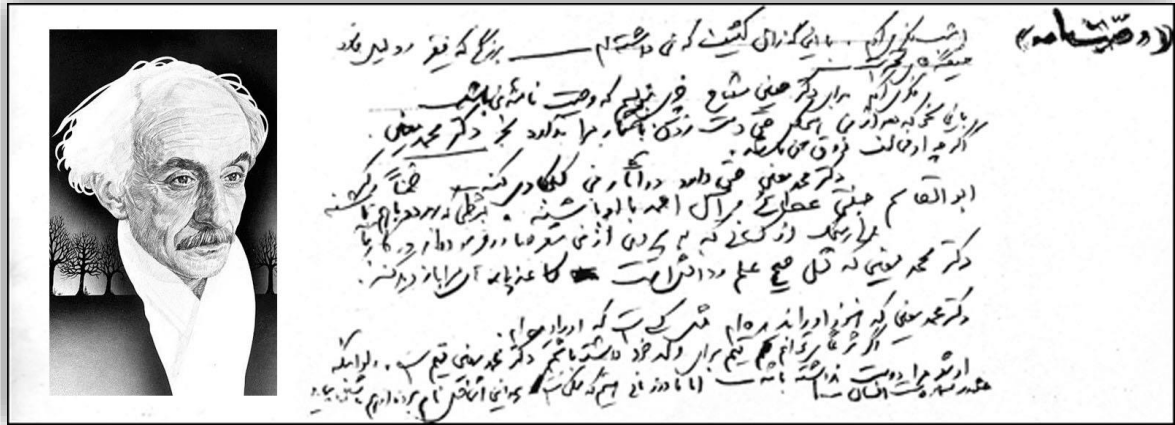 ((وصیتنامه))
امشب فکر می‌کردم با این گذران کثیف که من داشته‌ام ـــ بزرگی که فقیر و ذلیل می‌شود
حقیقةً جای تحسر است
فکر می‌کردم برای دکتر حسین مفتاح چیزی بنویسم که وصیت نامه من باشد
باین نحو که بعد از من هیچکس حق دست زدن به آثار مرا ندارد بجز دکتر محمد معین
اگر چه او مخالف ذوق من باشد.
دکتر محمد معین حق دارد در آثار من کنجکاوی کند ضمناً دکتر
ابوالقاسم جنتی عطائی و آل احمد با او باشند بشرطی که هر دو با هم باشند
هیچیک از کسانی که به پیروی از من شعر صادر فرموده‌اند در کار
دکتر محمد معین که مثل صحیح علم و دانش است کاغذ پاره‌های مرا بازدید کند.
دکتر محمد معین که هنوز او را ندیده‌ام مثل کسی است که او را دیده‌ام.
اگر شرعاً می‌توانم قیم برای ولد خود داشته باشم دکتر محمد معین قیم است. ولو اینکه
او شعر مرا دوست نداشته باشد اما ما در زمانی هستیم که ممکن است همه این اشخاص نامبرده از هم بدشان بیاید
چقدر بیچاره است انسان